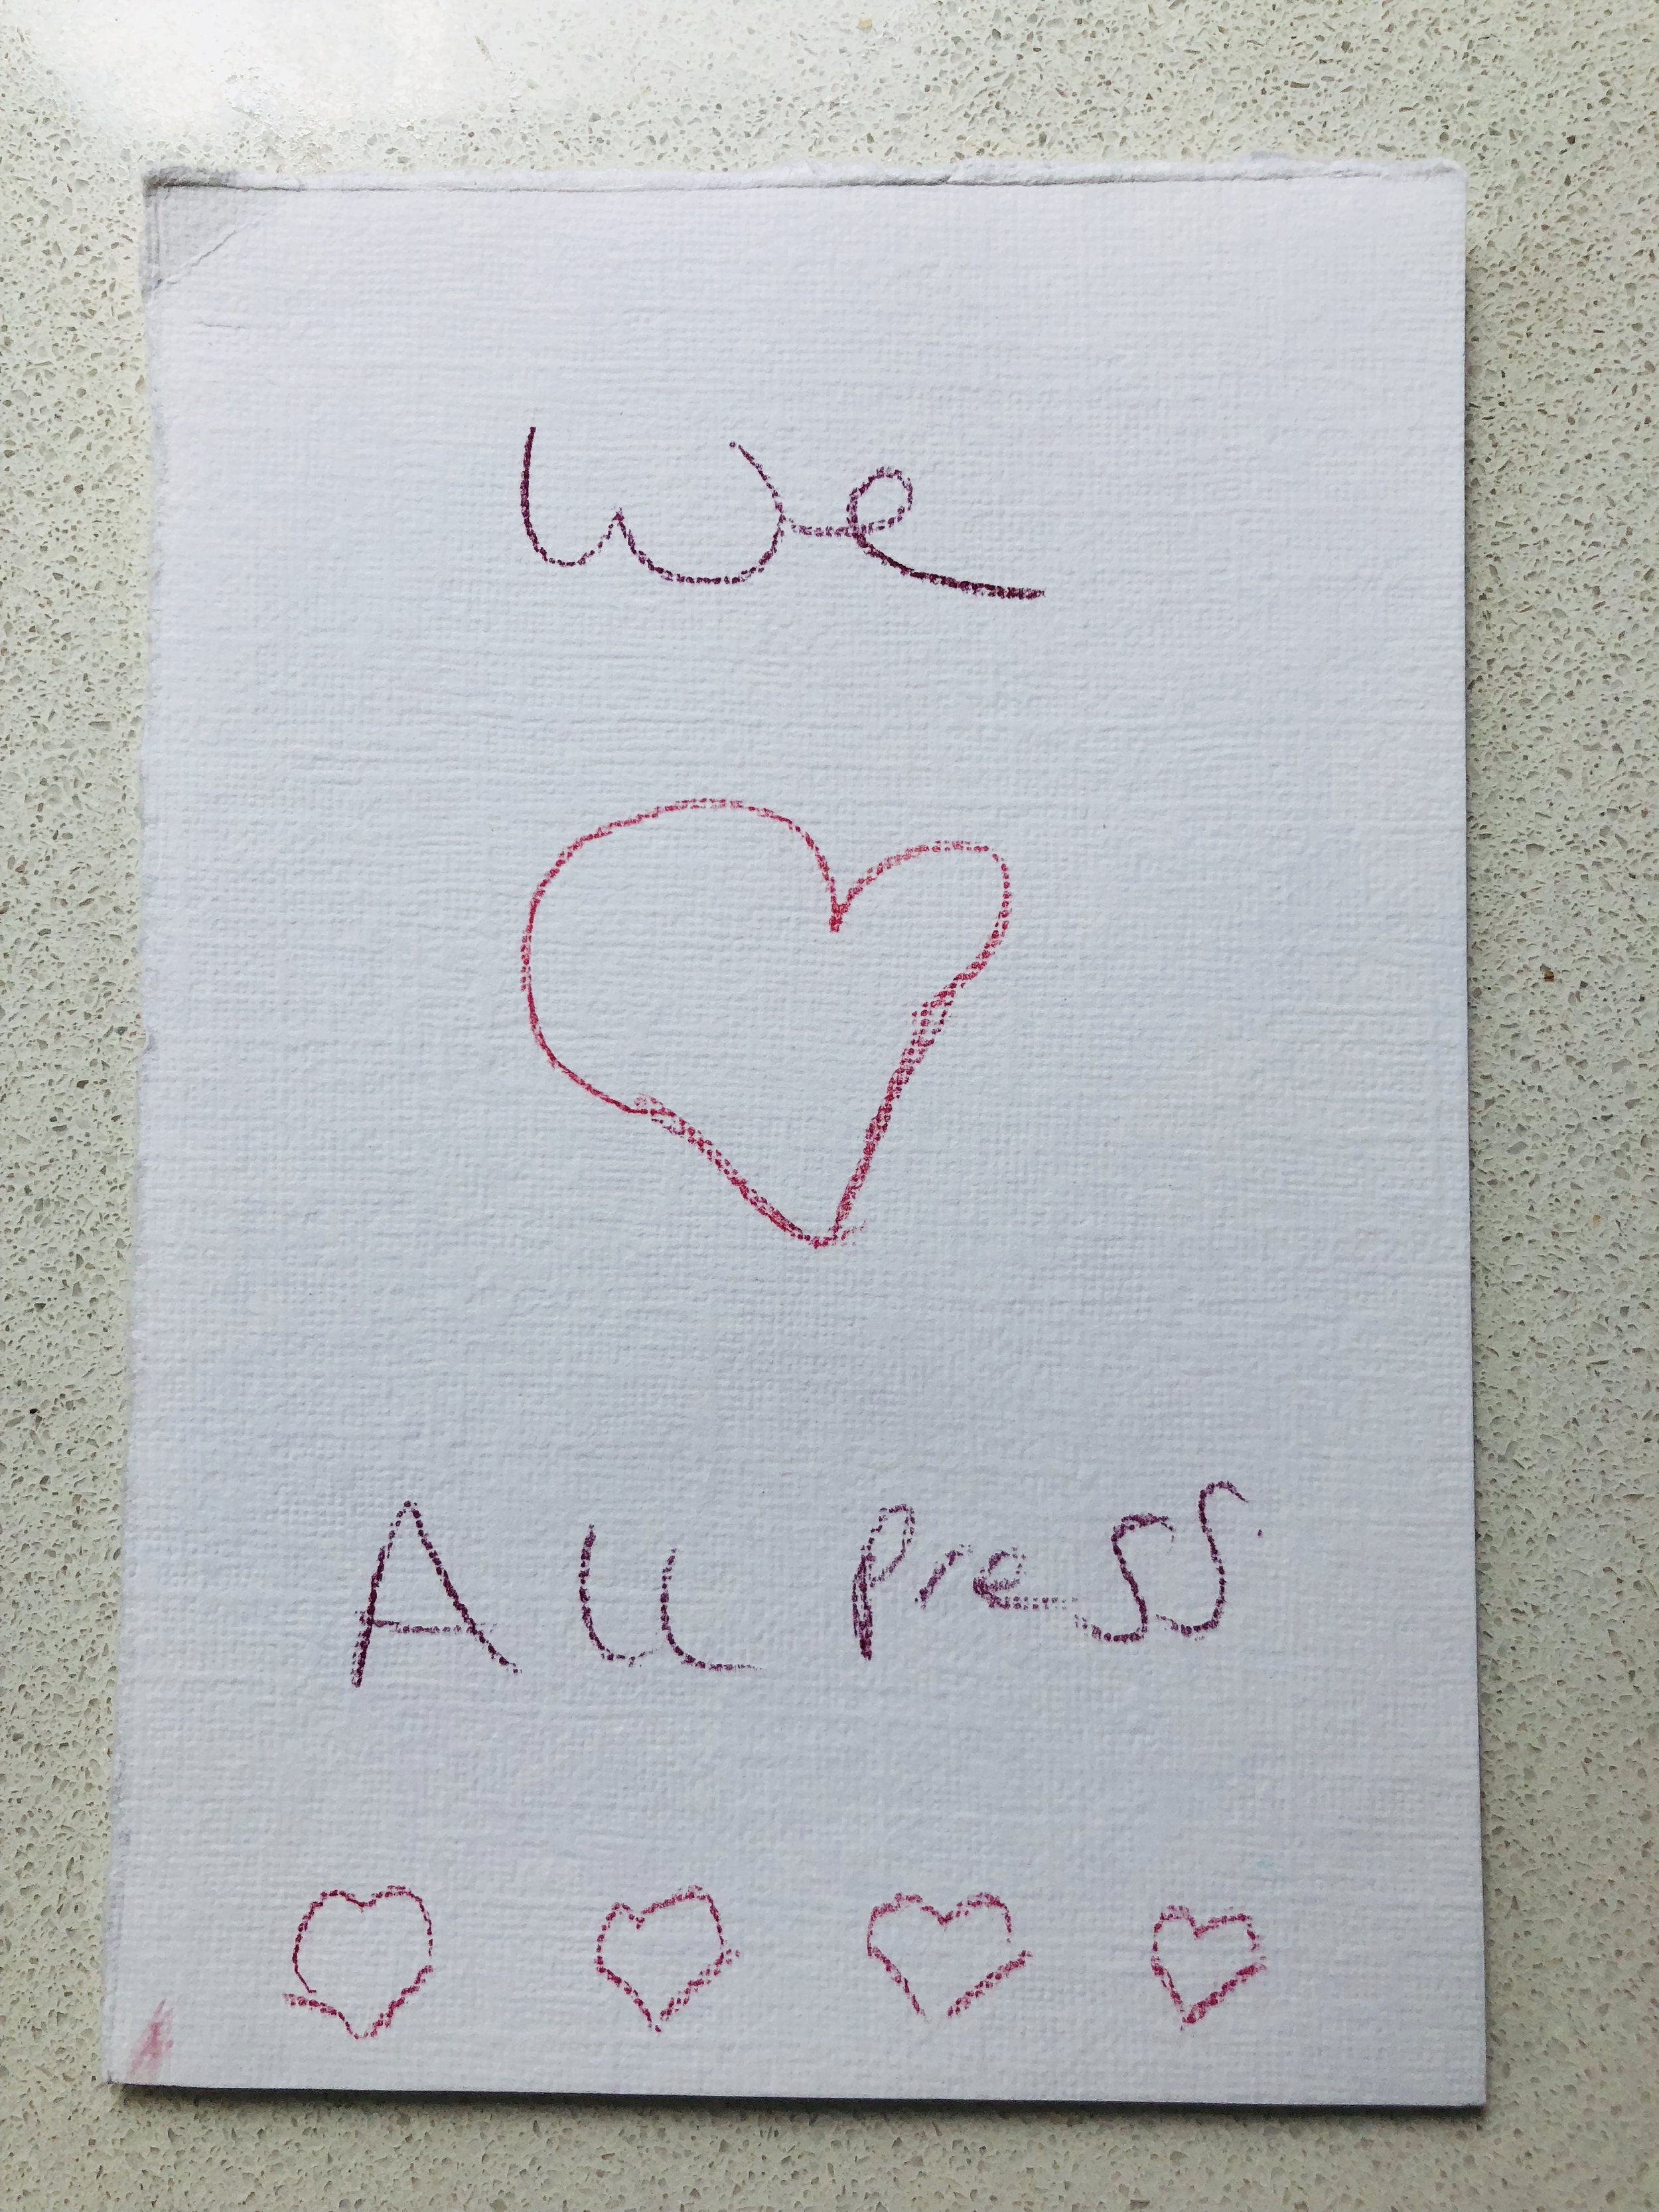 We
All Press